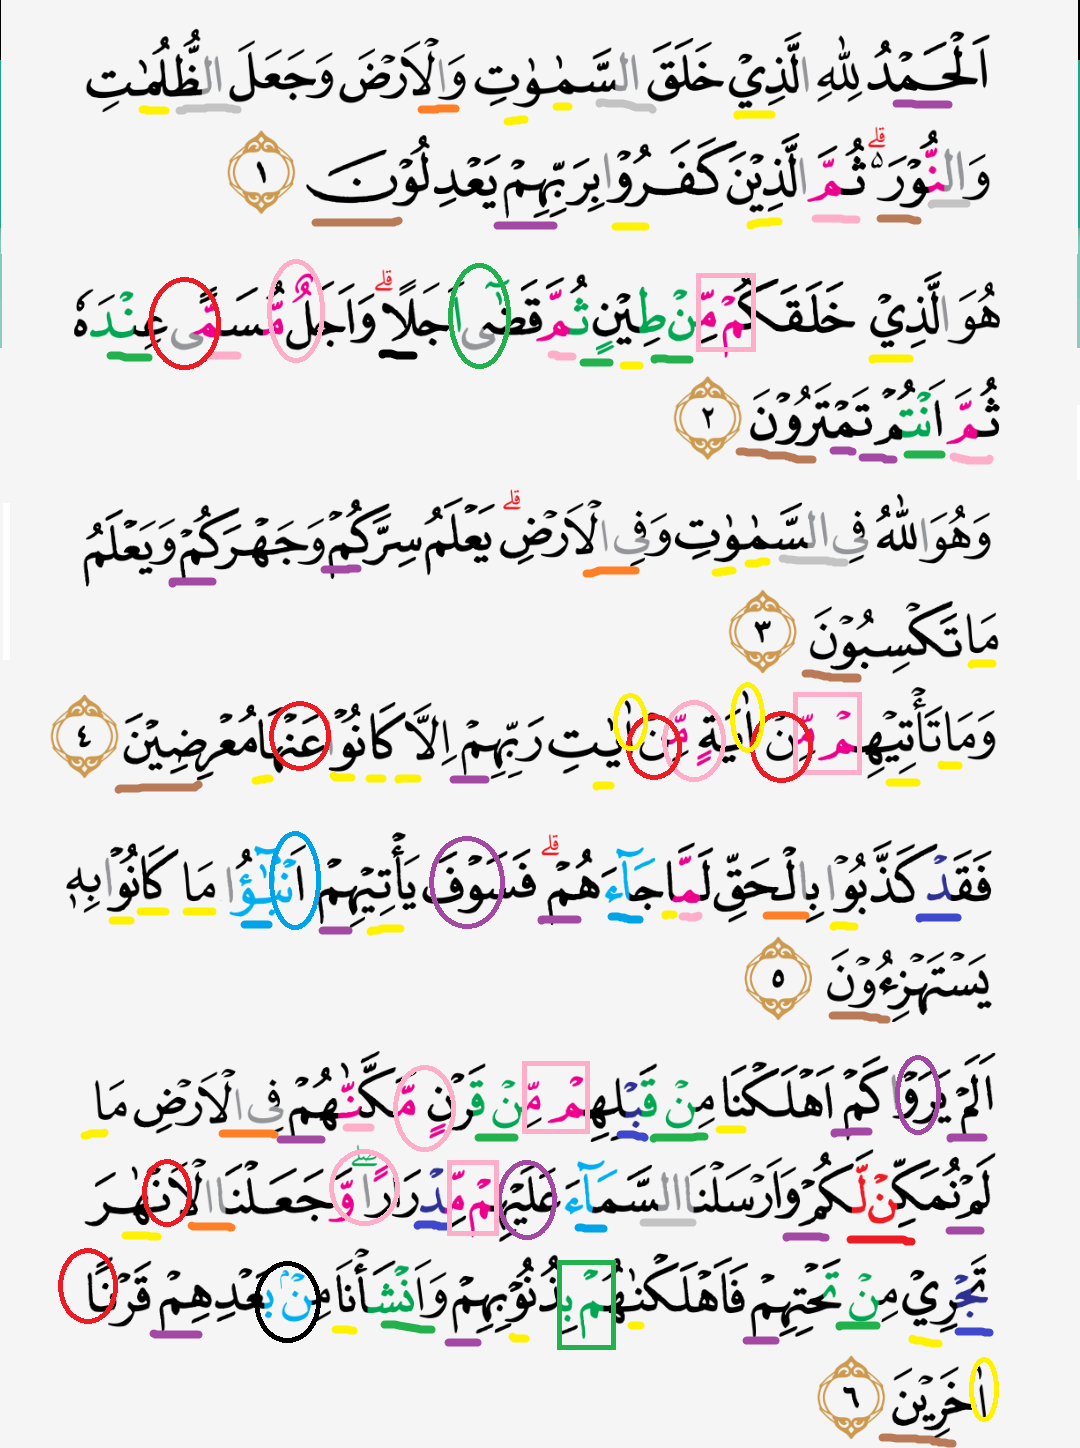 اَلْحَمْدُ لِلّٰهِ الَّذِيْ خَلَقَ السَّمٰوٰتِ وَالْاَرْضَ وَجَعَلَ الظُّلُمٰتِ
وَالنُّوْرَ ەۗ ثُمَّ الَّذِيْنَ كَفَرُوْا بِرَبِّهِمْ يَعْدِلُوْنَ ١
هُوَ الَّذِيْ خَلَقَكُمْ مِّنْ طِيْنٍ ثُمَّ قَضٰٓى اَجَلًا ۗوَاَجَلٌ مُّسَمًّى عِنْدَهٗ
ثُمَّ اَنْتُمْ تَمْتَرُوْنَ ٢
وَهُوَ اللّٰهُ فِى السَّمٰوٰتِ وَفِى الْاَرْضِۗ يَعْلَمُ سِرَّكُمْ وَجَهْرَكُمْ وَيَعْلَمُ
مَا تَكْسِبُوْنَ ٣
وَمَا تَأْتِيْهِمْ مِّنْ اٰيَةٍ مِّنْ اٰيٰتِ رَبِّهِمْ اِلَّا كَانُوْا عَنْهَا مُعْرِضِيْنَ ٤
فَقَدْ كَذَّبُوْا بِالْحَقِّ لَمَّا جَاۤءَهُمْۗ فَسَوْفَ يَأْتِيْهِمْ اَنْۢبـٰۤؤُا مَا كَانُوْا بِهٖ
يَسْتَهْزِءُوْنَ ٥
اَلَمْ يَرَوْا كَمْ اَهْلَكْنَا مِنْ قَبْلِهِمْ مِّنْ قَرْنٍ مَّكَّنّٰهُمْ فِى الْاَرْضِ مَا
لَمْ نُمَكِّنْ لَّكُمْ وَاَرْسَلْنَا السَّمَاۤءَ عَلَيْهِمْ مِّدْرَارًا ۖوَّجَعَلْنَا الْاَنْهٰرَ
تَجْرِيْ مِنْ تَحْتِهِمْ فَاَهْلَكْنٰهُمْ بِذُنُوْبِهِمْ وَاَنْشَأْنَا مِنْۢ بَعْدِهِمْ قَرْنًا
اٰخَرِيْنَ ٦